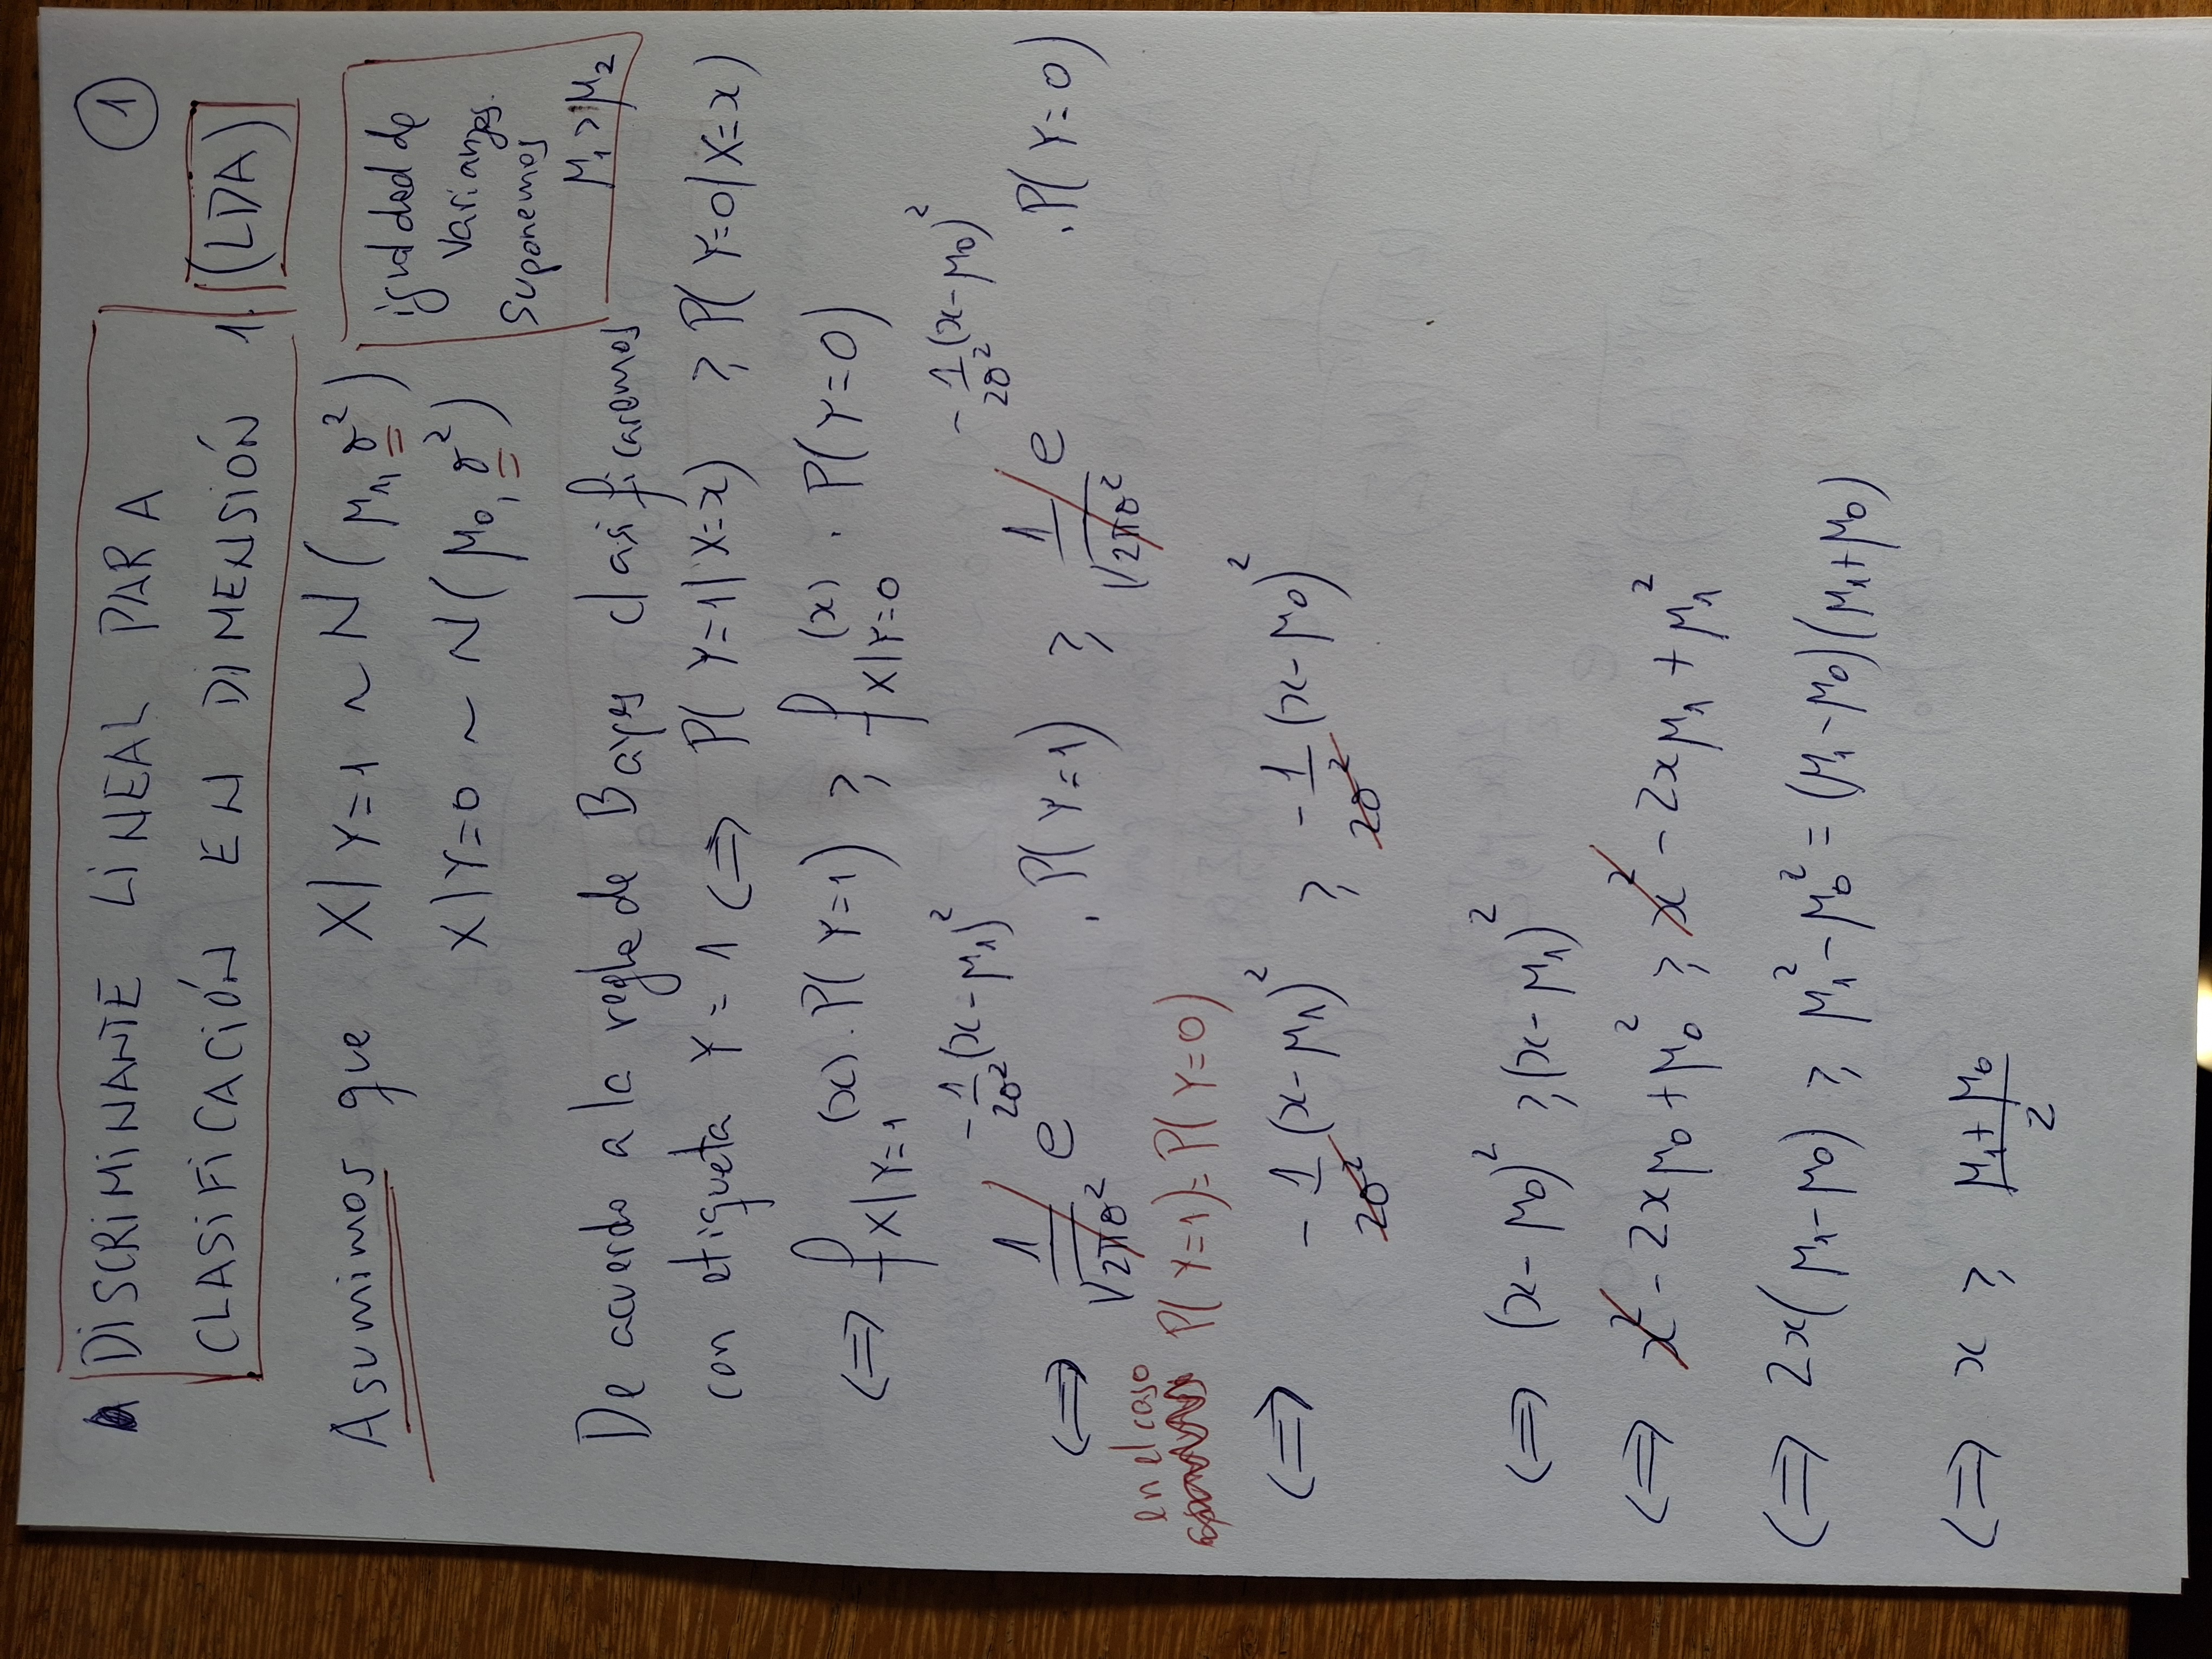 DISCRIMINANTE LINEAL PARA
CLASIFICACIÓN EN DIMENSIÓN 1. (LDA)
1
Asumimos que X|Y=1 ~ N(μ₁, σ²)
X|Y=0 ~ N(μ₀, σ²)
igualdad de
varianzas.
Suponemos
μ₁ > μ₂
De acuerdo a la regla de Bayes clasificaremos
con etiqueta Y = 1 <=> P(Y=1|X=x) ≥ P(Y=0|X=x)
<=> f_{X|Y=1}(x) . P(Y=1) ≥ f_{X|Y=0}(x) . P(Y=0)
<=> 1/√(2πσ²) e^{-1/(2σ²) (x-μ₁)²} . P(Y=1) ≥ 1/√(2πσ²) e^{-1/(2σ²) (x-μ₀)²} . P(Y=0)
en el caso
P(Y=1) = P(Y=0)
<=> -1/(2σ²) (x-μ₁)² ≥ -1/(2σ²) (x-μ₀)²
<=> (x-μ₀)² ≥ (x-μ₁)²
<=> x² - 2xμ₀ + μ₀² ≥ x² - 2xμ₁ + μ₁²
<=> 2x(μ₁-μ₀) ≥ μ₁² - μ₀² = (μ₁-μ₀)(μ₁+μ₀)
<=> x ≥ (μ₁+μ₀)/2